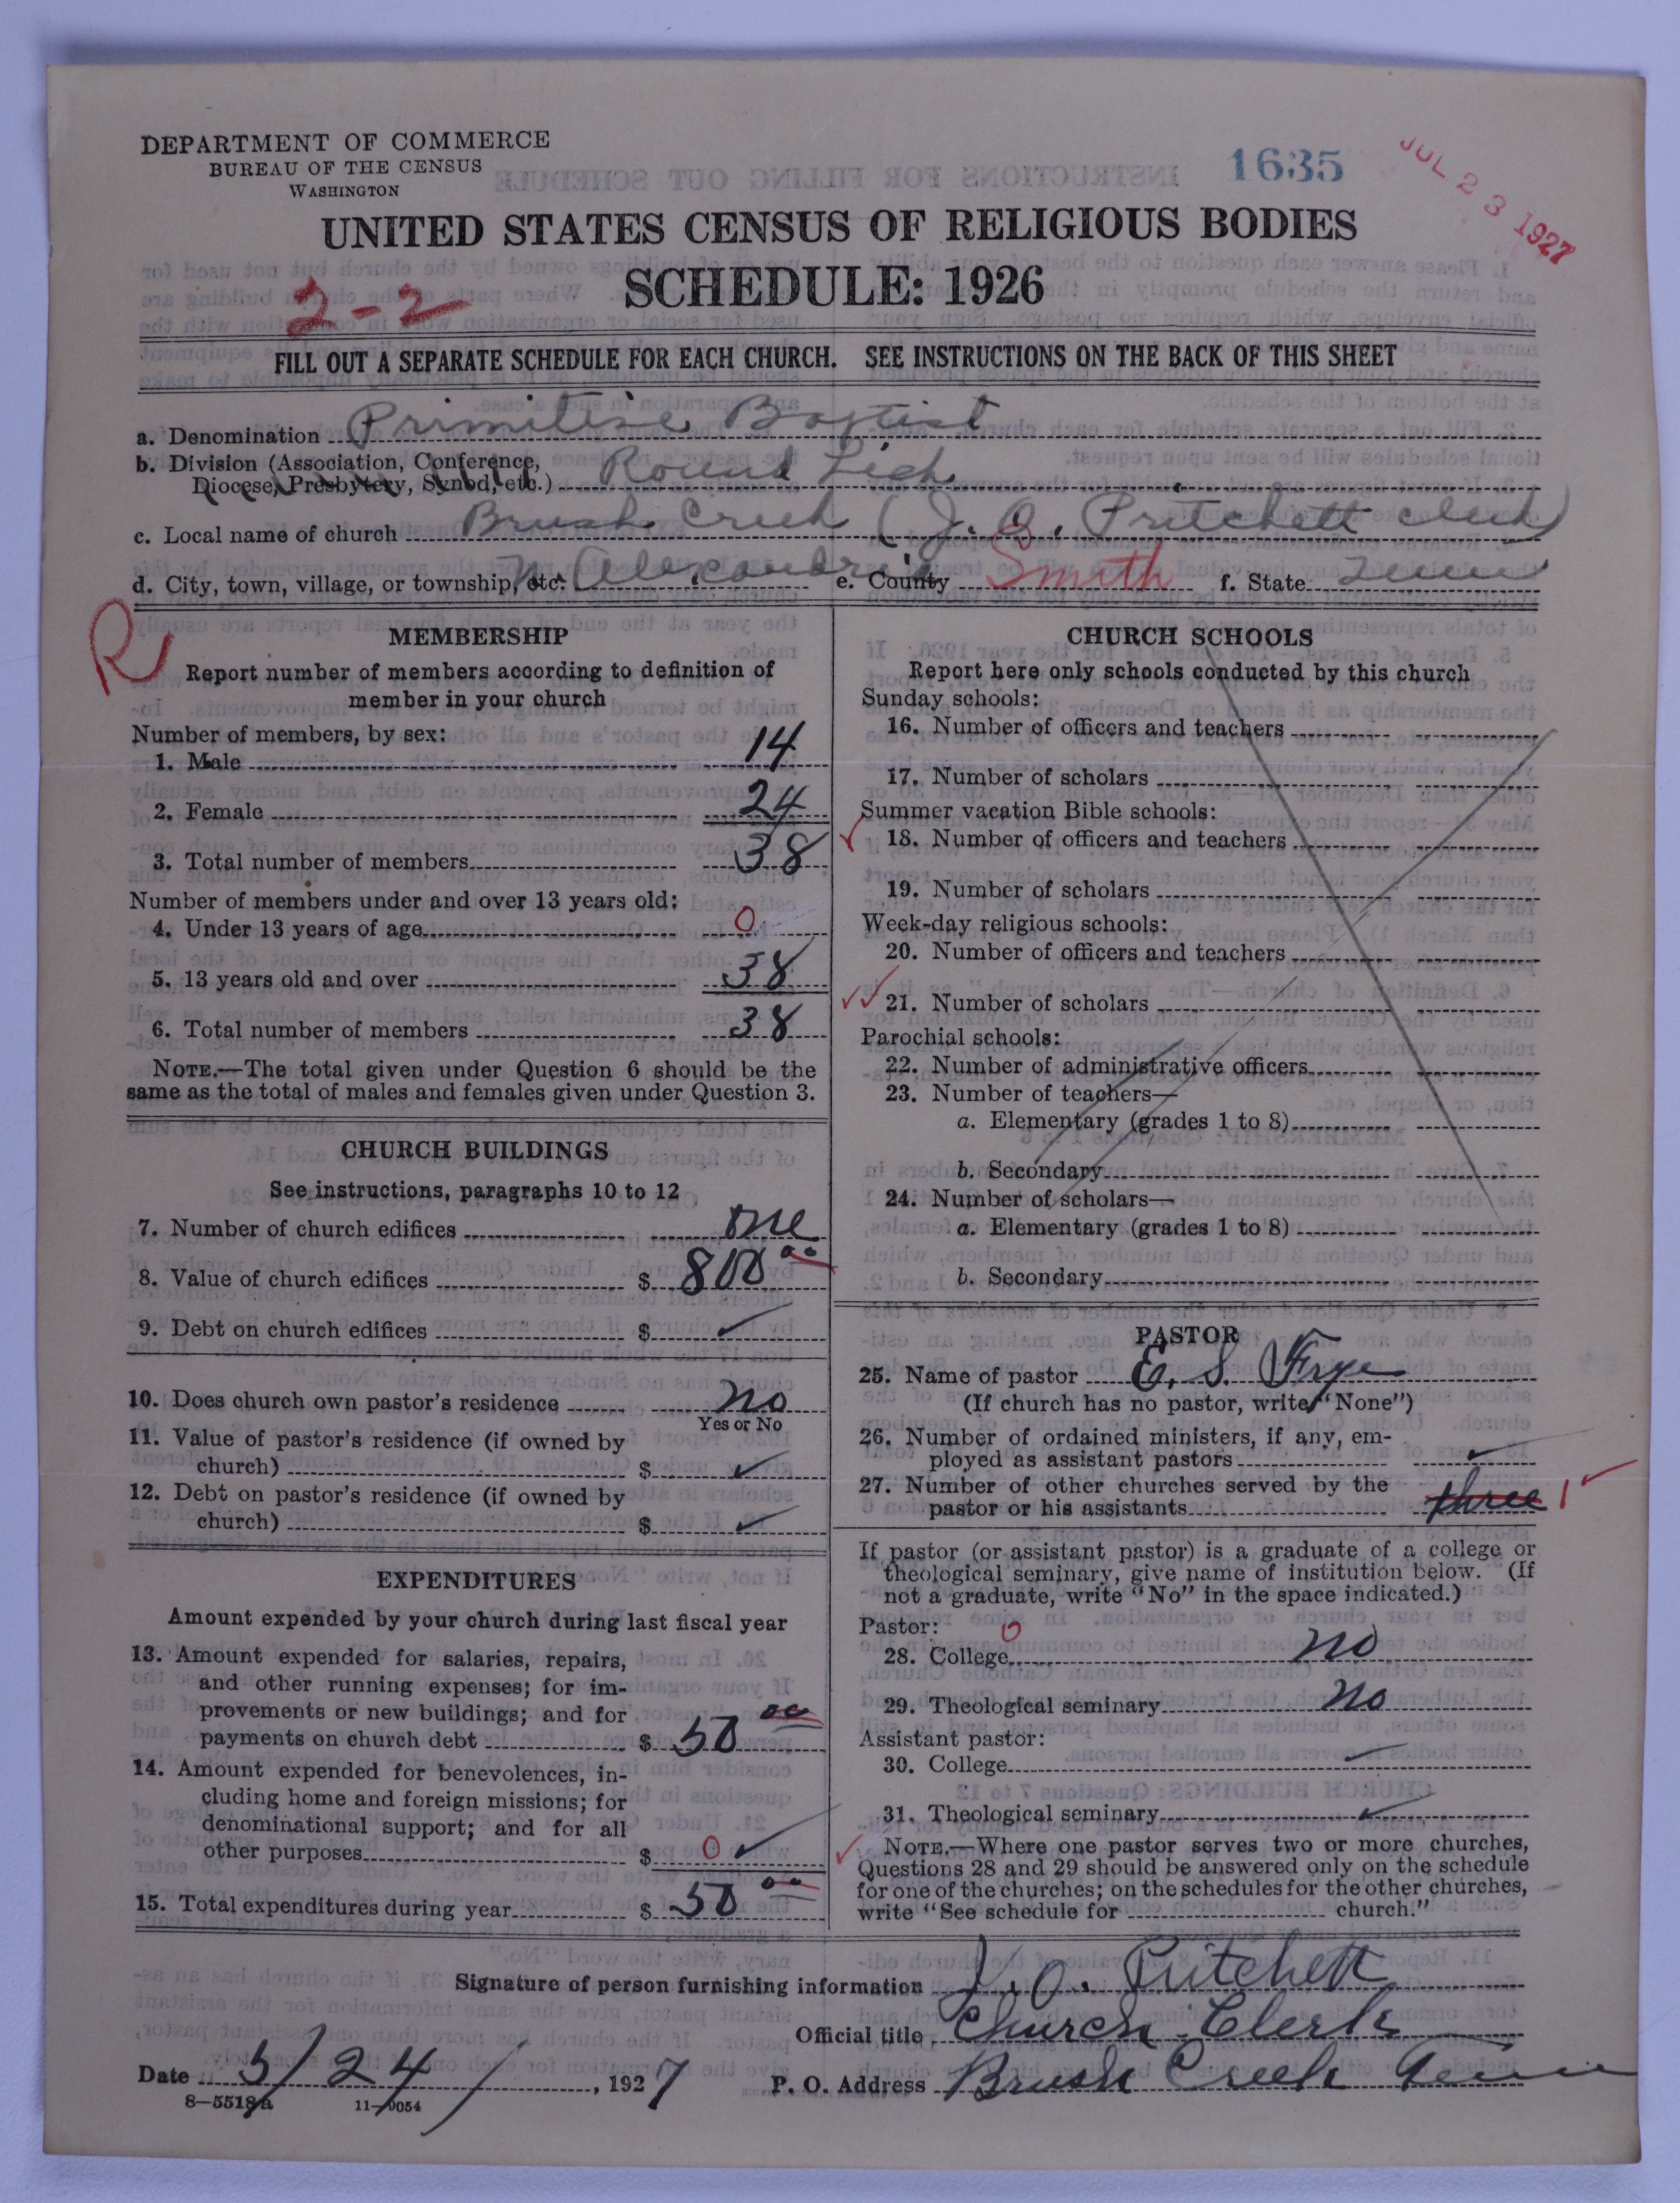 DEPARTMENT OF COMMERCE
BUREAU OF THE CENSUS
WASHINGTON
1635
JUL 23 1927
UNITED STATES CENSUS OF RELIGIOUS BODIES
SCHEDULE: 1926
2-2
FILL OUT A SEPARATE SCHEDULE FOR EACH CHURCH. SEE INSTRUCTIONS ON THE BACK OF THIS SHEET
a. Denomination Primitive Baptist
b. Division (Association, Conference, Diocese, Presbytery, Synod, etc.) Round Lick
c. Local name of church Brush Creek (J. O. Pritchett clerk)
d. City, town, village, or township, etc. Alexandria e. County Smith f. State Tenn
R
MEMBERSHIP
Report number of members according to definition of
member in your church
Number of members, by sex:
1. Male 14
2. Female 24
3. Total number of members 38
Number of members under and over 13 years old:
4. Under 13 years of age 0
5. 13 years old and over 38
6. Total number of members 38
NOTE.—The total given under Question 6 should be the
same as the total of males and females given under Question 3.
CHURCH BUILDINGS
See instructions, paragraphs 10 to 12
7. Number of church edifices one
8. Value of church edifices $ 800 00
9. Debt on church edifices $ ✓
10. Does church own pastor's residence no
Yes or No
11. Value of pastor's residence (if owned by
church) $ ✓
12. Debt on pastor's residence (if owned by
church) $ ✓
EXPENDITURES
Amount expended by your church during last fiscal year
13. Amount expended for salaries, repairs,
and other running expenses; for im-
provements or new buildings; and for
payments on church debt $ 50 00
14. Amount expended for benevolences, in-
cluding home and foreign missions; for
denominational support; and for all
other purposes $ 0 ✓
15. Total expenditures during year $ 50 00
CHURCH SCHOOLS
Report here only schools conducted by this church
Sunday schools:
16. Number of officers and teachers
17. Number of scholars
Summer vacation Bible schools:
18. Number of officers and teachers
19. Number of scholars
Week-day religious schools:
20. Number of officers and teachers
21. Number of scholars
Parochial schools:
22. Number of administrative officers
23. Number of teachers—
a. Elementary (grades 1 to 8)
b. Secondary
24. Number of scholars—
a. Elementary (grades 1 to 8)
b. Secondary
PASTOR
25. Name of pastor E. S. Frye
(If church has no pastor, write "None")
26. Number of ordained ministers, if any, em-
ployed as assistant pastors ✓
27. Number of other churches served by the
pastor or his assistants three 1 ✓
If pastor (or assistant pastor) is a graduate of a college or
theological seminary, give name of institution below. (If
not a graduate, write "No" in the space indicated.)
Pastor: 0
28. College no
29. Theological seminary no
Assistant pastor:
30. College ✓
31. Theological seminary ✓
NOTE.—Where one pastor serves two or more churches,
Questions 28 and 29 should be answered only on the schedule
for one of the churches; on the schedules for the other churches,
write "See schedule for church."
Signature of person furnishing information J. O. Pritchett
Official title Church Clerk
Date 5/24/, 1927 P. O. Address Brush Creek Tenn
8—5518a 11—9054